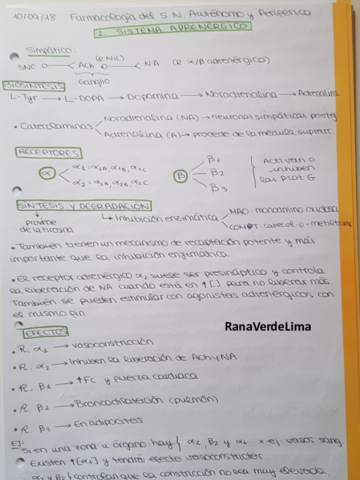 10/09/18 Farmacología del S.N. Autónomo y Periférico
2. SISTEMA ADRENÉRGICO
Simpático: (R.Nic)
SNC O Ach O NA (R α/β adrenérgico)
Ganglio
BIOSÍNTESIS
L-Tyr → L-DOPA → Dopamina → Noradrenalina → Adrenalina
• Catecolaminas Noradrenalina (NA) → neuronas simpáticas postg
Adrenalina (A) → procede de la médula suprarr.
RECEPTORES
α α1 = α1A, α1B, α1C
α2 = α2A, α2B, α2C
β β1
β2
β3
Activan o
inhiben
las Prot G
SÍNTESIS Y DEGRADACIÓN
proviene
de la tirosina
→ Inhibición enzimática MAO: monoamino oxidasa
COMT: catecol-O-metiltrans
• También tienen un mecanismo de recaptación potente y más
importante que la inhibición enzimática.
• El receptor adrenérgico α2 suele ser presináptico y controla
la liberación de NA cuando está en ↑[ ] para no liberar más.
También se pueden estimular con agonistas adrenérgicos, con
el mismo fin.
RanaVerdeLima
EFECTOS
• R. α1 → vasoconstricción
• R. α2 → Inhiben la liberación de Ach y NA
• R. β1 → ↑FC y fuerza cardíaca
• R. β2 → Broncodilatación (pulmón)
• R. β3 → En adipocitos
Ej:
Si en una zona u órgano hay α2, β2 y α1 x ej. vasos sang
Existen ↑[α1] y tendrá efecto vasoconstrictor
α2 y β2 controlan que la constricción no sea muy elevada